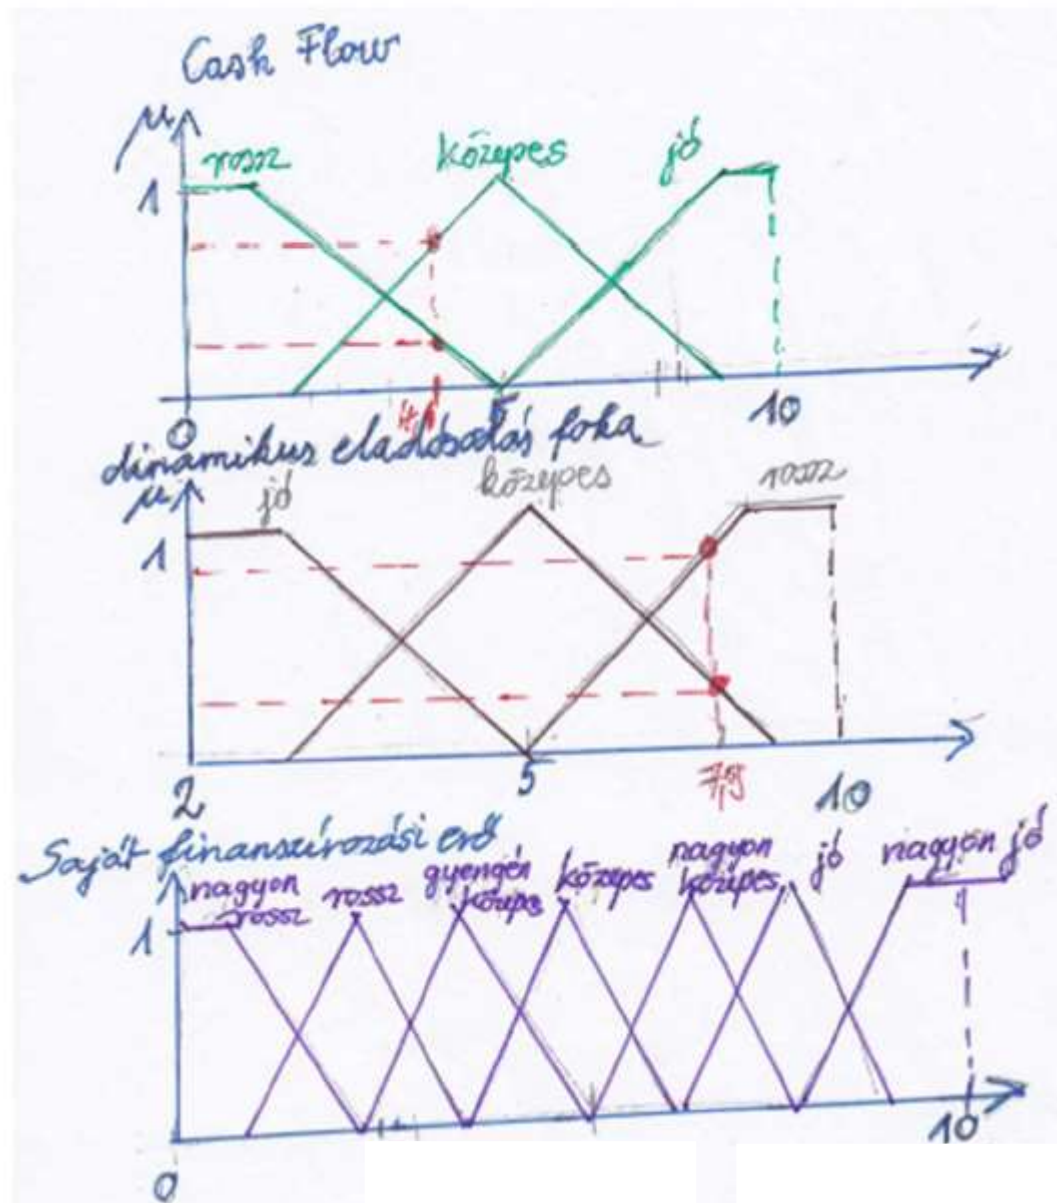 Cash Flow
μ
rossz közepes jó
1
0 5 10
dinamikus eladósodás foka
μ
jó közepes rossz
1
2 5 7,5 10
Saját finanszírozási erő
nagyon rossz rossz gyengén közepes közepes nagyon közepes jó nagyon jó
1
0 10